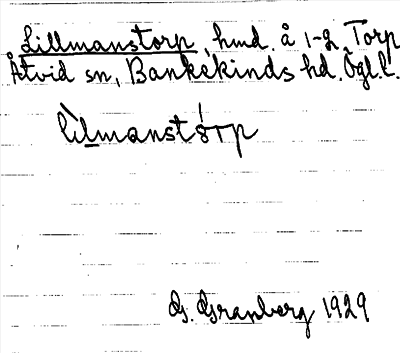 Lillmanstorp, hmd. å 1-2 Torp
Åtvid sn, Bankekinds hd. Ögl. l.
G. Granberg 1929